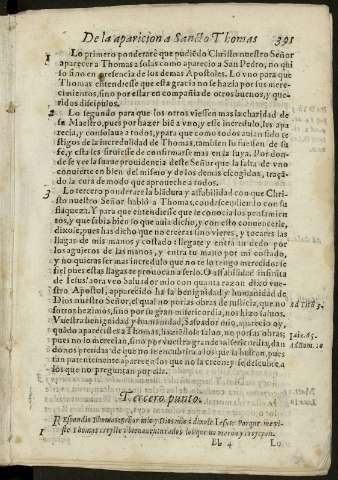 De la aparicion a Sancto Thomas 391
1 Lo primero ponderarè que pudiẽdo Christo nuestro Señor
aparecer a Thomas a solas como aparecio a San Pedro, no qui
so sino en presencia de los demas Apostoles. Lo vno para que
Thomas entendiesse que esta gracia no se hazia por sus mere-
cimientos, sino por estar en compañia de otros buenos, y que-
ridos discipulos.
2 Lo segundo para que los otros viessen mas la charidad de
su Maestro, pues por hazer biẽ a vno, y este incredulo, los apa
recia, y consolaua a todos, y para que como todos auian sido te
stigos de la incredulidad de Thomas, tambien lo fuessen de su
fe, y esta les siruiesse de confirmarse mas en la suya. Por don-
de se ve la suaue prouidencia deste Señor que la falta de vno
conuierte en bien del mismo y de los demas escogidos, traçã-
do la cura de modo que aproueche a todos.
3 Lo tercero ponderare la blãdura y affabilidad con que Chri-
sto nuestro Señor hablò a Thomas, condescendiendo con su
flaqueza. Y para que entendiesse que le conocia los pensamien
tos, y que sabia bien lo que auia dicho, y con esto conuencerle,
dixole, pues has dicho que no creeras sino vieres, y tocares las
llagas de mis manos y costado: llegate y entra tu dedo por
los agujeros de las manos, y entra tu mano por mi costado,
y no quieras ser mas incredulo que no te lo tengo merecido: se
fiel pues estas llagas te prouocan a serlo. O affabilidad infinita
de Iesus! aora veo Saluador mio con quanta razon dixo vue-
stro Apostol, aparecido ha la benignidad y humanidad de
Dios nuestro Señor, el qual no por las obras de justicia, que no-
sotros hezimos, sino por su gran misericordia, nos hizo saluos.
Vuestra benignidad y humanidad, Saluador mio, aparecio oy,
quãdo aparecistes a Thomas, haziendole saluo, no por sus obras
pues no lo merecian, sino por vuestra grande misericordia, dan
donos prendas de que no te encubriras a los que la buscan, pues
tan patentemente aparece a los que no la creen, y se descubre a
los que no preguntan por ella.
Ad Tit. 3.
Isai. 65.
Ad Rom. 10
Tercero punto.
1 REspondio Thomas: señor mio y Dios mio: dixole Iesus: Porque me vi-
ste Thomas creyste: bienauenturados los que no vieron y creyeron.
Bb 4 Lo